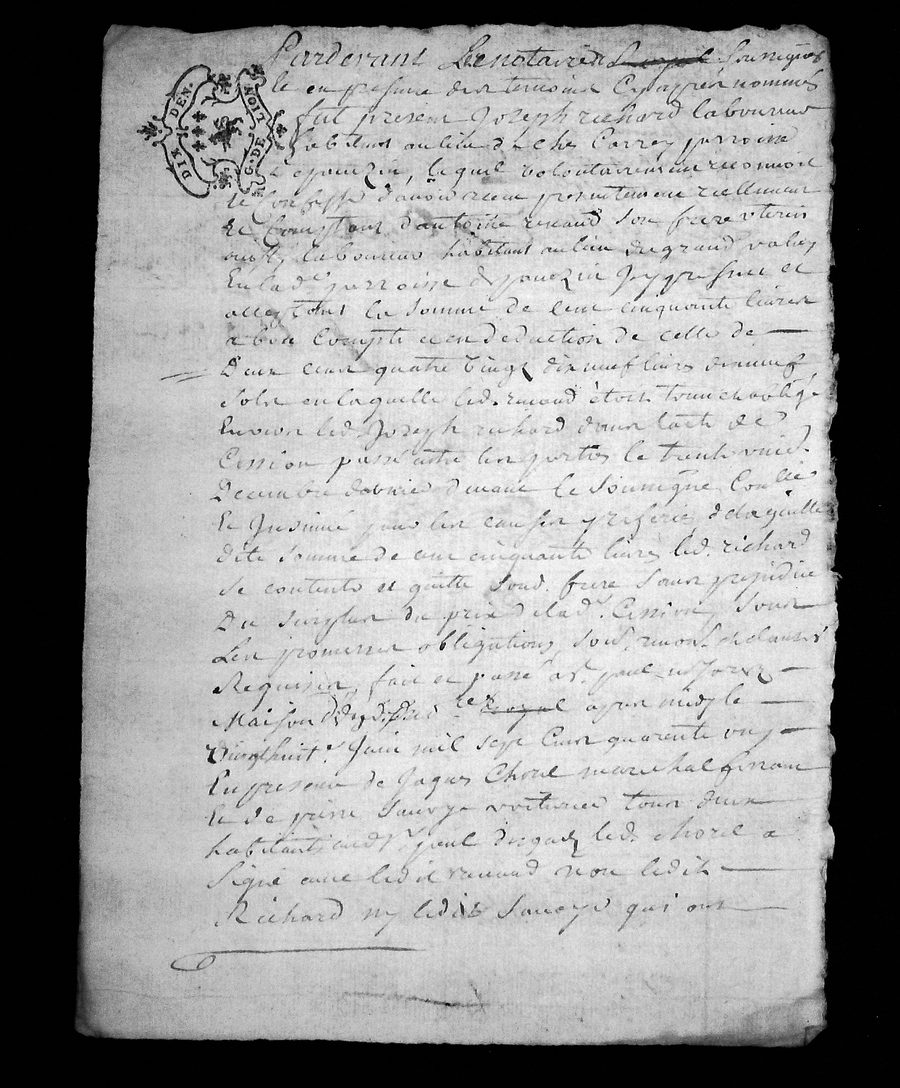 DIX DEN.
G. DE NOIT
Pardevant Le notaire Royal soussigné
et en presence des temoins cy apres nommés
fut present Joseph richard laboureur
habitant au lieu de ches Carrey parroisse
lequel volontairement reconnoit
et confesse d'avoir receu presentement reellement
et comptant d'antoine renaud son frere uterin
aussy laboureur habitant au lieu du grand
En lad.e parroisse de icy present et
acceptant la somme de cent cinquante livres
a bon compte et en deduction de celle de
Deux cent quatre vingt dix neuf livres dix neuf
sols en laquelle led. renaud étoit obligé
Envers led. Joseph richard dans l'acte de
Cession passé entre les parties le trente
Decembre dernier devant le soussigné Controllé
Et Insinué pour les causes y referées de laquelle
dite somme de cent cinquante livres led. richard
se contente et quitte sond. frere sans prejudice
Du surplus du prix de lad.e Cession, sous
Les promesses obligations, soum. renonc. et clauses
Requises, fait et passé a St. paul
Maison royal apres midy le
Vingt huit.e Juin mil sept Cent quarente un
En presence de Jaques Chorel marechal ferrant
Et de pierre Sauvye voiturier tous deux
habitants aud. St. paul led. chorel a
Signé avec ledit renaud non ledit
Richard ny ledit Sauvye qui ont